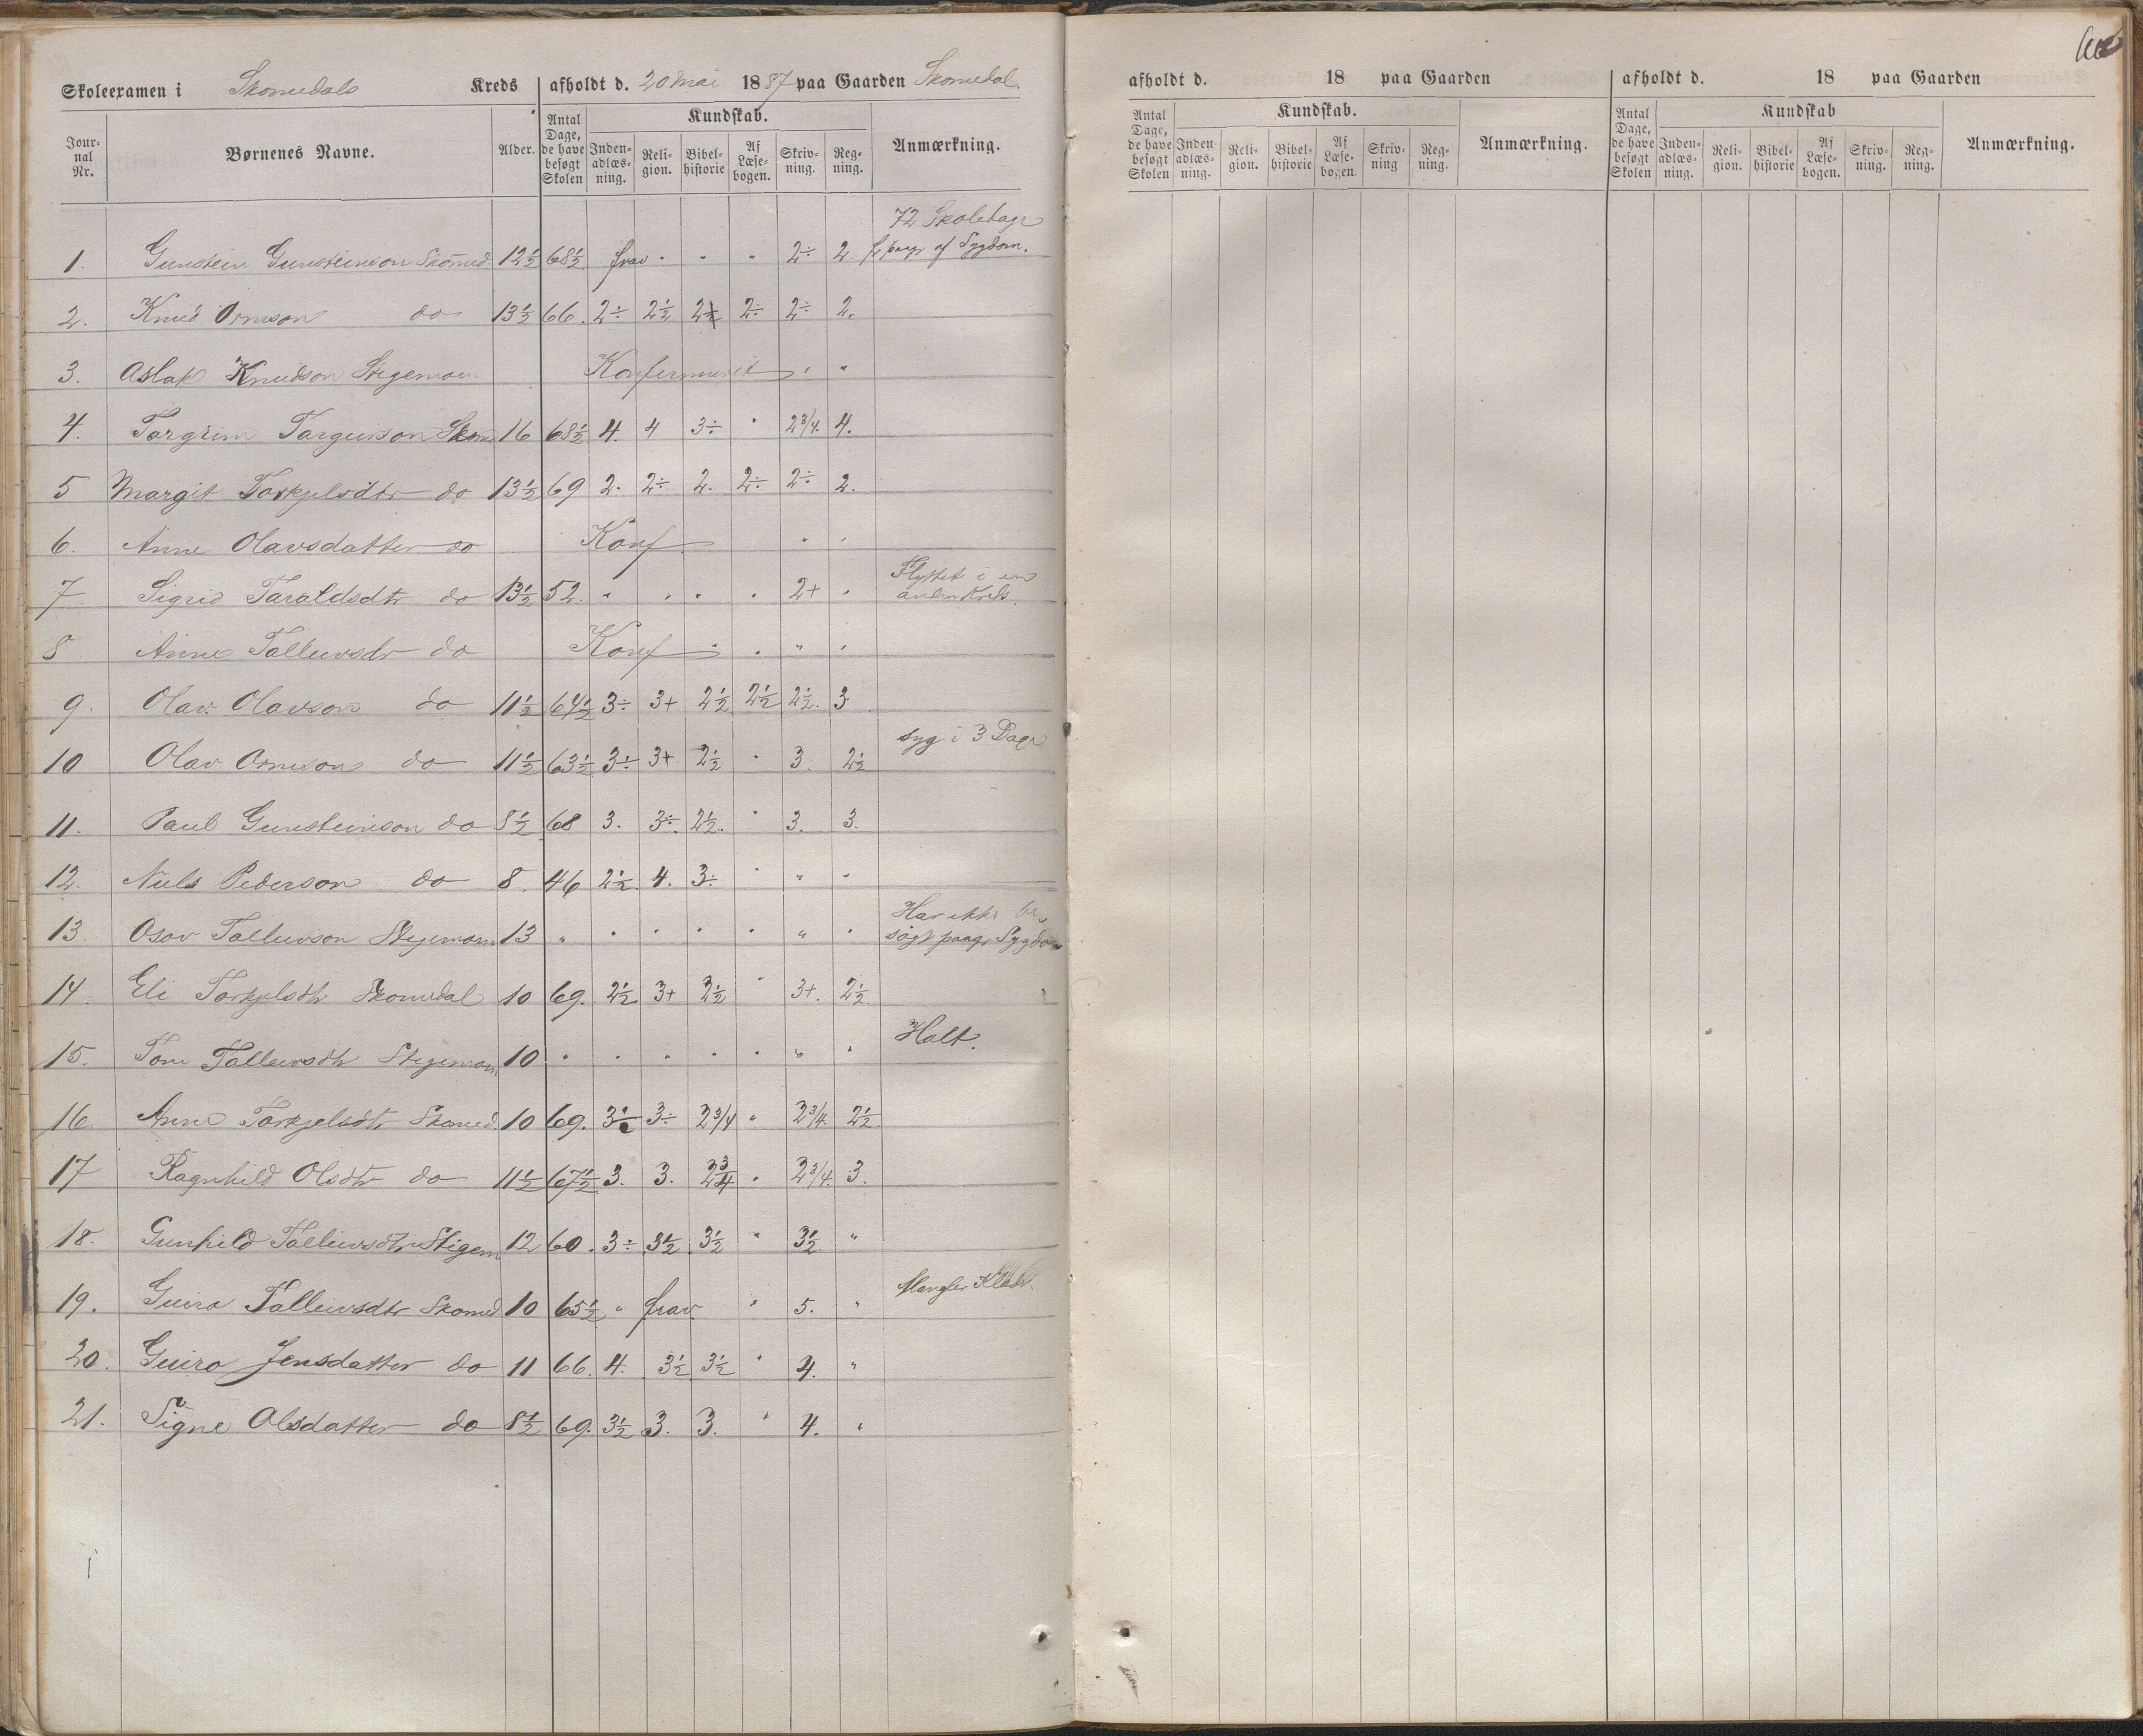 Skoleexamen i Skomedals Kreds afholdt d. 20 Mai 1887 paa Gaarden Skomedal.
Jour-nal Nr. Børnenes Navne. Alder. Antal Dage, de have besøgt Skolen Kundskab. Inden-adlæs-ning. Reli-gion. Bibel-historie Af Læse-bogen. Skriv-ning. Reg-ning. Anmærkning.
72 Skoledage
1. Gunstein Gunsteinson Skomed. 12½ 68½ frav " " " 2÷ 2 paagr af Sygdom.
2. Knud Ornson do 13½ 66. 2÷ 2½ 2÷ 2÷ 2.
3. Aslak Knudson Stigemoen Konfirmeret " "
4. Torgrim Targeirson Skom 16 68½ 4. 4 3÷ " 2 3/4. 4.
5 Margit Torkjelsdtr do 13½ 69 2. 2÷ 2. 2÷ 2÷ 2.
6. Anne Olavsdatter do Konf " "
7 Sigrid Taraldsdtr do 13½ 52. " " " " 2+ " Flyttet i en anden Kreds.
8 Anne Tallevsdr do Konf " " " "
9. Olav Olavson do 11½ 64½ 3÷ 3+ 2½ 2½ 2½. 3
10 Olav Ornson do 11½ 63½ 3÷ 3+ 2½ " 3. 2½ syg i 3 Dage
11. Paul Gunsteinson do 8½ 68 3. 3÷. 2½. " 3. 3.
12. Niels Pederson do 8. 46 2½ 4. 3÷ " " "
13. Osov Tallevson Stigemoen 13 " " " " " " " Har ikke besøgt paagr Sygdom
14. Eli Torkjelsdtr Skomedal 10 69. 2½ 3+ 3½ " 3+. 2½.
15. Tone Tallevsdtr Stigemoen 10 " " " " " " " Halt.
16. Anne Torkjelsdtr Skomed. 10 69. 3÷ 2 3/4 " 2 3/4. 2½
17 Ragnhild Olsdtr do 11½ 67½ 3. 3. 2 3/4 " 2 3/4. 3.
18. Gunhild Tallevsdtr Stigem 12 60. 3÷ 3½ 3½ " 3½ "
19. Guro Tallevsdtr Skomed. 10 65½ " frav. " 5. " Mangler Klæder.
20. Guro Jensdatter do 11 66. 4. 3½ 3½ " 4. "
21. Signe Olsdatter do 8½ 69. 3½ 3. 3. " 4. "
afholdt d. 18 paa Gaarden
Antal Dage, de have besøgt Skolen Kundskab. Inden-adlæs-ning. Reli-gion. Bibel-historie Af Læse-bogen. Skriv-ning Reg-ning. Anmærkning.
afholdt d. 18 paa Gaarden
Antal Dage, de have besøgt Skolen Kundskab Inden-adlæs-ning. Reli-gion. Bibel-historie Af Læse-bogen. Skriv-ning. Reg-ning. Anmærkning.